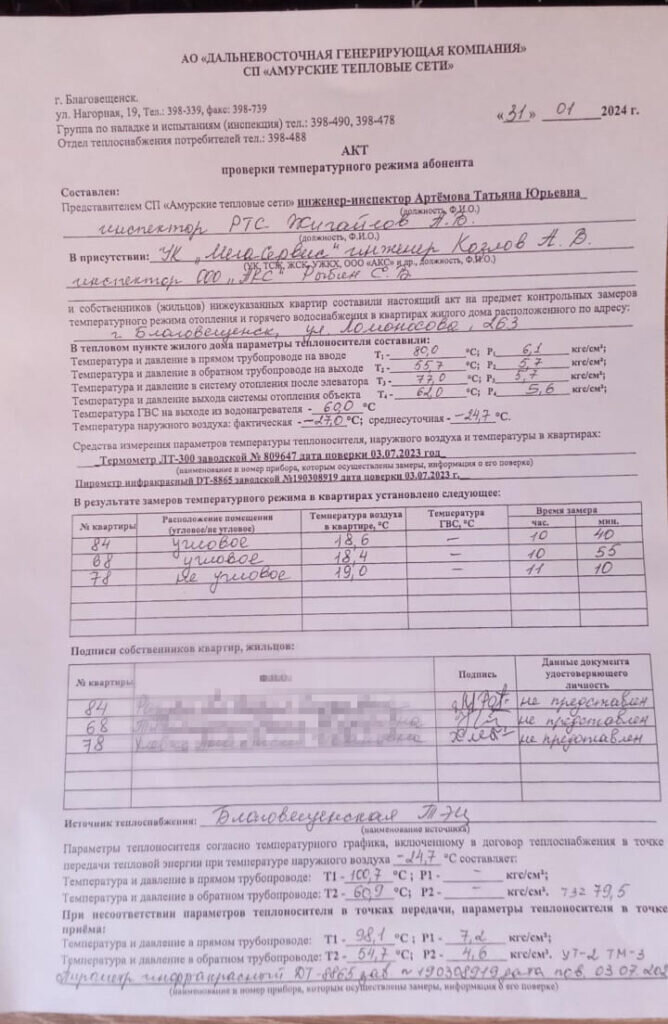 АО «ДАЛЬНЕВОСТОЧНАЯ ГЕНЕРИРУЮЩАЯ КОМПАНИЯ»
СП «АМУРСКИЕ ТЕПЛОВЫЕ СЕТИ»
г. Благовещенск.
ул. Нагорная, 19, Тел.: 398-339, факс: 398-739
«31» 01 2024 г.
Группа по наладке и испытаниям (инспекция) тел.: 398-490, 398-478
Отдел теплоснабжения потребителей тел.: 398-488
АКТ
проверки температурного режима абонента
Составлен:
Представителем СП «Амурские тепловые сети» инженер-инспектор Артёмова Татьяна Юрьевна
(должность, Ф.И.О.)
инспектор РТС Жигайлов А.В.
(должность, Ф.И.О.)
В присутствии: УК „Мега-Сервис" инженер Козлов А. В.
(УК, ТСЖ, ЖСК, УЖКХ, ООО «АКС» и др., должность, Ф.И.О.)
инспектор ООО „АКС" С. В
и собственников (жильцов) нижеуказанных квартир составили настоящий акт на предмет контрольных замеров
температурного режима отопления и горячего водоснабжения в квартирах жилого дома расположенного по адресу:
г. Благовещенск, ул. Ломоносова, 263
В тепловом пункте жилого дома параметры теплоносителя составили:
Температура и давление в прямом трубопроводе на вводе T1 - 80,0 °С; P1 6,1 кгс/см²;
Температура и давление в обратном трубопроводе на выходе T2 - 55,7 °С; P2 5,7 кгс/см²;
Температура и давление в систему отопления после элеватора T3 - 77,0 °С; P3 5,7 кгс/см²;
Температура и давление выхода системы отопления объекта T4 - 62,0 °С; P4 5,6 кгс/см²;
Температура ГВС на выходе из водонагревателя - 60,0 °С
Температура наружного воздуха: фактическая - -27,0 °С; среднесуточная - -24,7 °С.
Средства измерения параметров температуры теплоносителя, наружного воздуха и температуры в квартирах:
Термометр ЛТ-300 заводской № 809647 дата поверки 03.07.2023 год
(наименование и номер прибора, которым осуществлены замеры, информация о его поверке)
Пирометр инфракрасный DT-8865 заводской №190308919 дата поверки 03.07.2023 г.
В результате замеров температурного режима в квартирах установлено следующее:
№ квартиры Расположение помещения (угловое/не угловое) Температура воздуха в квартире, °С Температура ГВС, °С Время замера
час. мин.
84 угловое 18,6 – 10 40
68 угловое 18,4 – 10 55
78 Не угловое 19,0 – 11 10
Подписи собственников квартир, жильцов:
№ квартиры Подпись Данные документа удостоверяющего личность
84 не представлен
68 не представлен
78 не представлен
Источник теплоснабжения: Благовещенская ТЭЦ
(наименование источника)
Параметры теплоносителя согласно температурного графика, включенному в договор теплоснабжения в точке
передачи тепловой энергии при температуре наружного воздуха -24,7 °С составляет:
Температура и давление в прямом трубопроводе: T1 - 100,7 °С; P1 - – кгс/см²;
Температура и давление в обратном трубопроводе: T2 - 60,9 °С; P2 - – кгс/см². 79,5
При несоответствии параметров теплоносителя в точках передачи, параметры теплоносителя в точке
приёма:
Температура и давление в прямом трубопроводе: T1 - 98,1 °С; P1 - 7,2 кгс/см²;
Температура и давление в обратном трубопроводе: T2 - 54,7 °С; P2 - 4,6 кгс/см². УТ-2 ТМ-3
Пирометр инфракрасный DT-8865 зав №190308919 дата пов. 03.07.202
(наименование и номер прибора, которым осуществлены замеры, информация о его поверке)